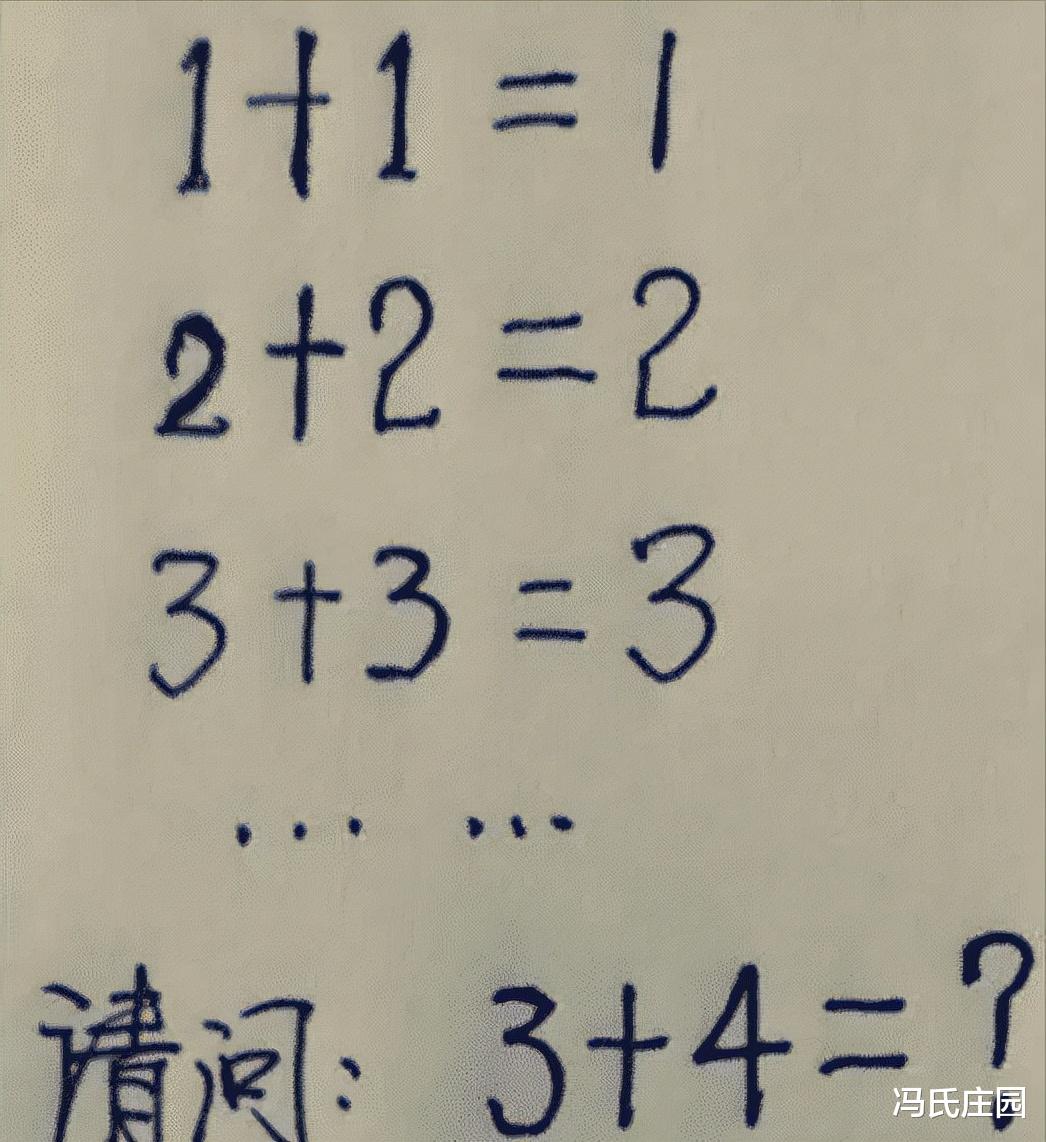 1+1=1
2+2=2
3+3=3
... ...
请问: 3+4=?
冯氏庄园